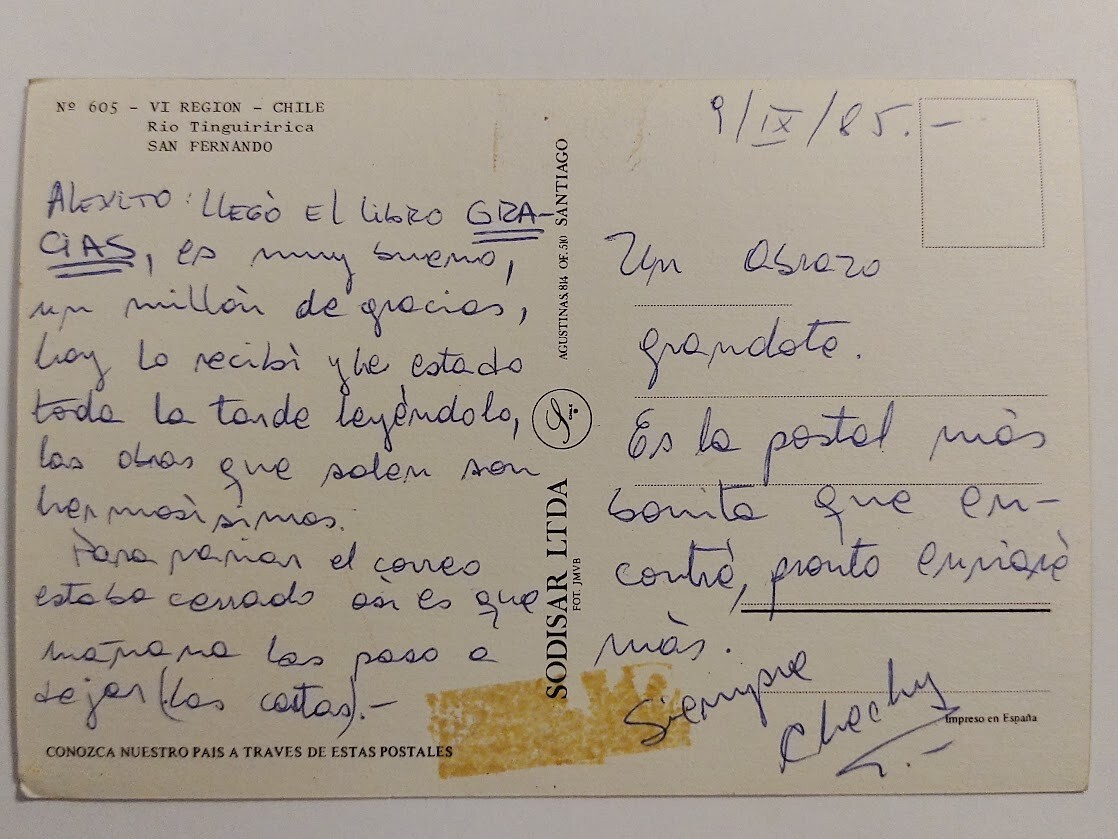 Nº 605 - VI REGION - CHILE
Rio Tinguiririca
SAN FERNANDO
ALEXITO: LLEGÒ EL LIBRO GRA-
CIAS, es muy bueno,
un millòn de gracias,
hoy lo recibì y he estado
toda la tarde leyèndolo,
las obras que salen son
hermosìsimas.
Para variar el correo
estaba cerrado asì es que
mañana las paso a
dejar (las cartas).-
CONOZCA NUESTRO PAIS A TRAVES DE ESTAS POSTALES
SODISAR LTDA AGUSTINAS 814 OF. 510 SANTIAGO
FOT. JMVB
9/IX/85.-
Un abrazo
grandote.
Es la postal màs
bonita que en-
contrè, pronto enviarè
màs.
Siempre
Chechy
Impreso en España